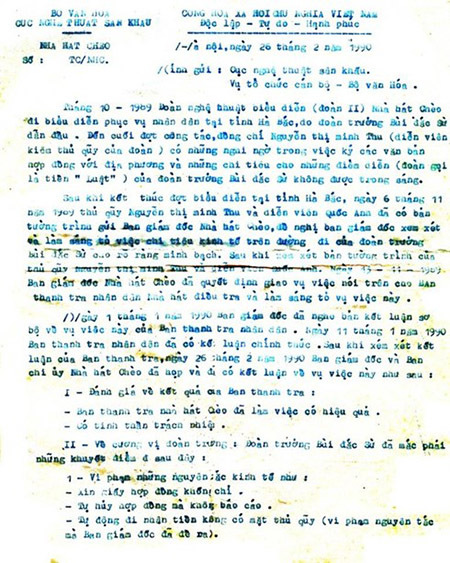 BO VAN HOA
CUC NGHE THUAT SAN KHAU
CONG HOA XA HOI CHU NGHIA VIET NAM
Độc lập - Tự do - Hạnh phúc
NHA HAT CHEO
Số : TC/NHC.
/-/à nội, ngày 26 tháng 2 năm 1990
/(ính gửi : Cục nghệ thuật sân khấu.
Vụ tổ chức cán bộ - Bộ văn Hóa .
Tháng 10 - 1989 Đoàn nghệ thuật biểu diễn (đoàn II) Nhà hát Chèo
đi biểu diễn phục vụ nhân dân tại tỉnh Hà Bắc, do đoàn trưởng Bùi đắc Sừ
dẫn đầu . Đến cuối đợt công tác, đồng chí Nguyễn thị minh Thu (diễn viên
kiêm thủ qũy của đoàn ) có những nghi ngờ trong việc ký các văn bản
hợp đồng với địa phương và những chi tiêu cho những điểm diễn (đoàn gọi
là tiền " Luật" ) của đoàn trưởng Bùi đắc Sừ không được trong sáng.
Sau khi kết thúc đợt biểu diễn tại tỉnh Hà Bắc, ngày 6 tháng 11
năm 1989 thủ qũy Nguyễn thị minh Thu và diễn viên Quốc Anh đã có bản
tường trình gửi Ban giám đốc Nhà hát Chèo, đề nghị ban giám đốc xem xét
và làm sáng tỏ việc chi tiêu kinh tế trên đường đi của đoàn trưởng
Bùi đắc Sừ cho rõ ràng minh bạch. Sau khi xem xét bản tường trình của
thủ qũy Nguyễn thị minh Thu và diễn viên Quốc Anh. Ngày 13 - 11 - 1989.
Ban giám đốc Nhà hát Chèo đã quyết định giao vụ việc nói trên cho Ban
thanh tra nhân dân Nhà hát điều tra và làm sáng tỏ vụ việc này .
/)/gày 1 tháng 1 năm 1990 Ban giám đốc đã nghe bản kết luận sơ
bộ về vụ việc này của Ban thanh tra nhân dân . Ngày 11 tháng 1 năm 1990
Ban thanh tra nhân dân đã có kết luận chính thức . Sau khi xem xét kết
luận của Ban thanh tra, ngày 26 tháng 2 năm 1990 Ban giám đốc và Ban
chi ủy Nhà hát Chèo đã họp và đi có kết luận về vụ việc này như sau :
I - Đánh giá về kết quả của Ban thanh tra :
- Ban thanh tra nhà hát Chèo đã làm việc có hiệu quả .
- Có tinh thần trách nhiệm .
II - Về cương vị đoàn trưởng : Đoàn trưởng Bùi đắc Sừ đã mắc phải
những khuyết điểm ở sau đây :
1 - Vi phạm những nguyên tắc kinh tế như :
- Xin giấy hợp đồng khống chỉ .
- Tự hủy hợp đồng mà không báo cáo .
- Tự động đi nhận tiền không có mặt thủ qũy (vi phạm nguyên tắc
mà Ban giám đốc đã đề ra).